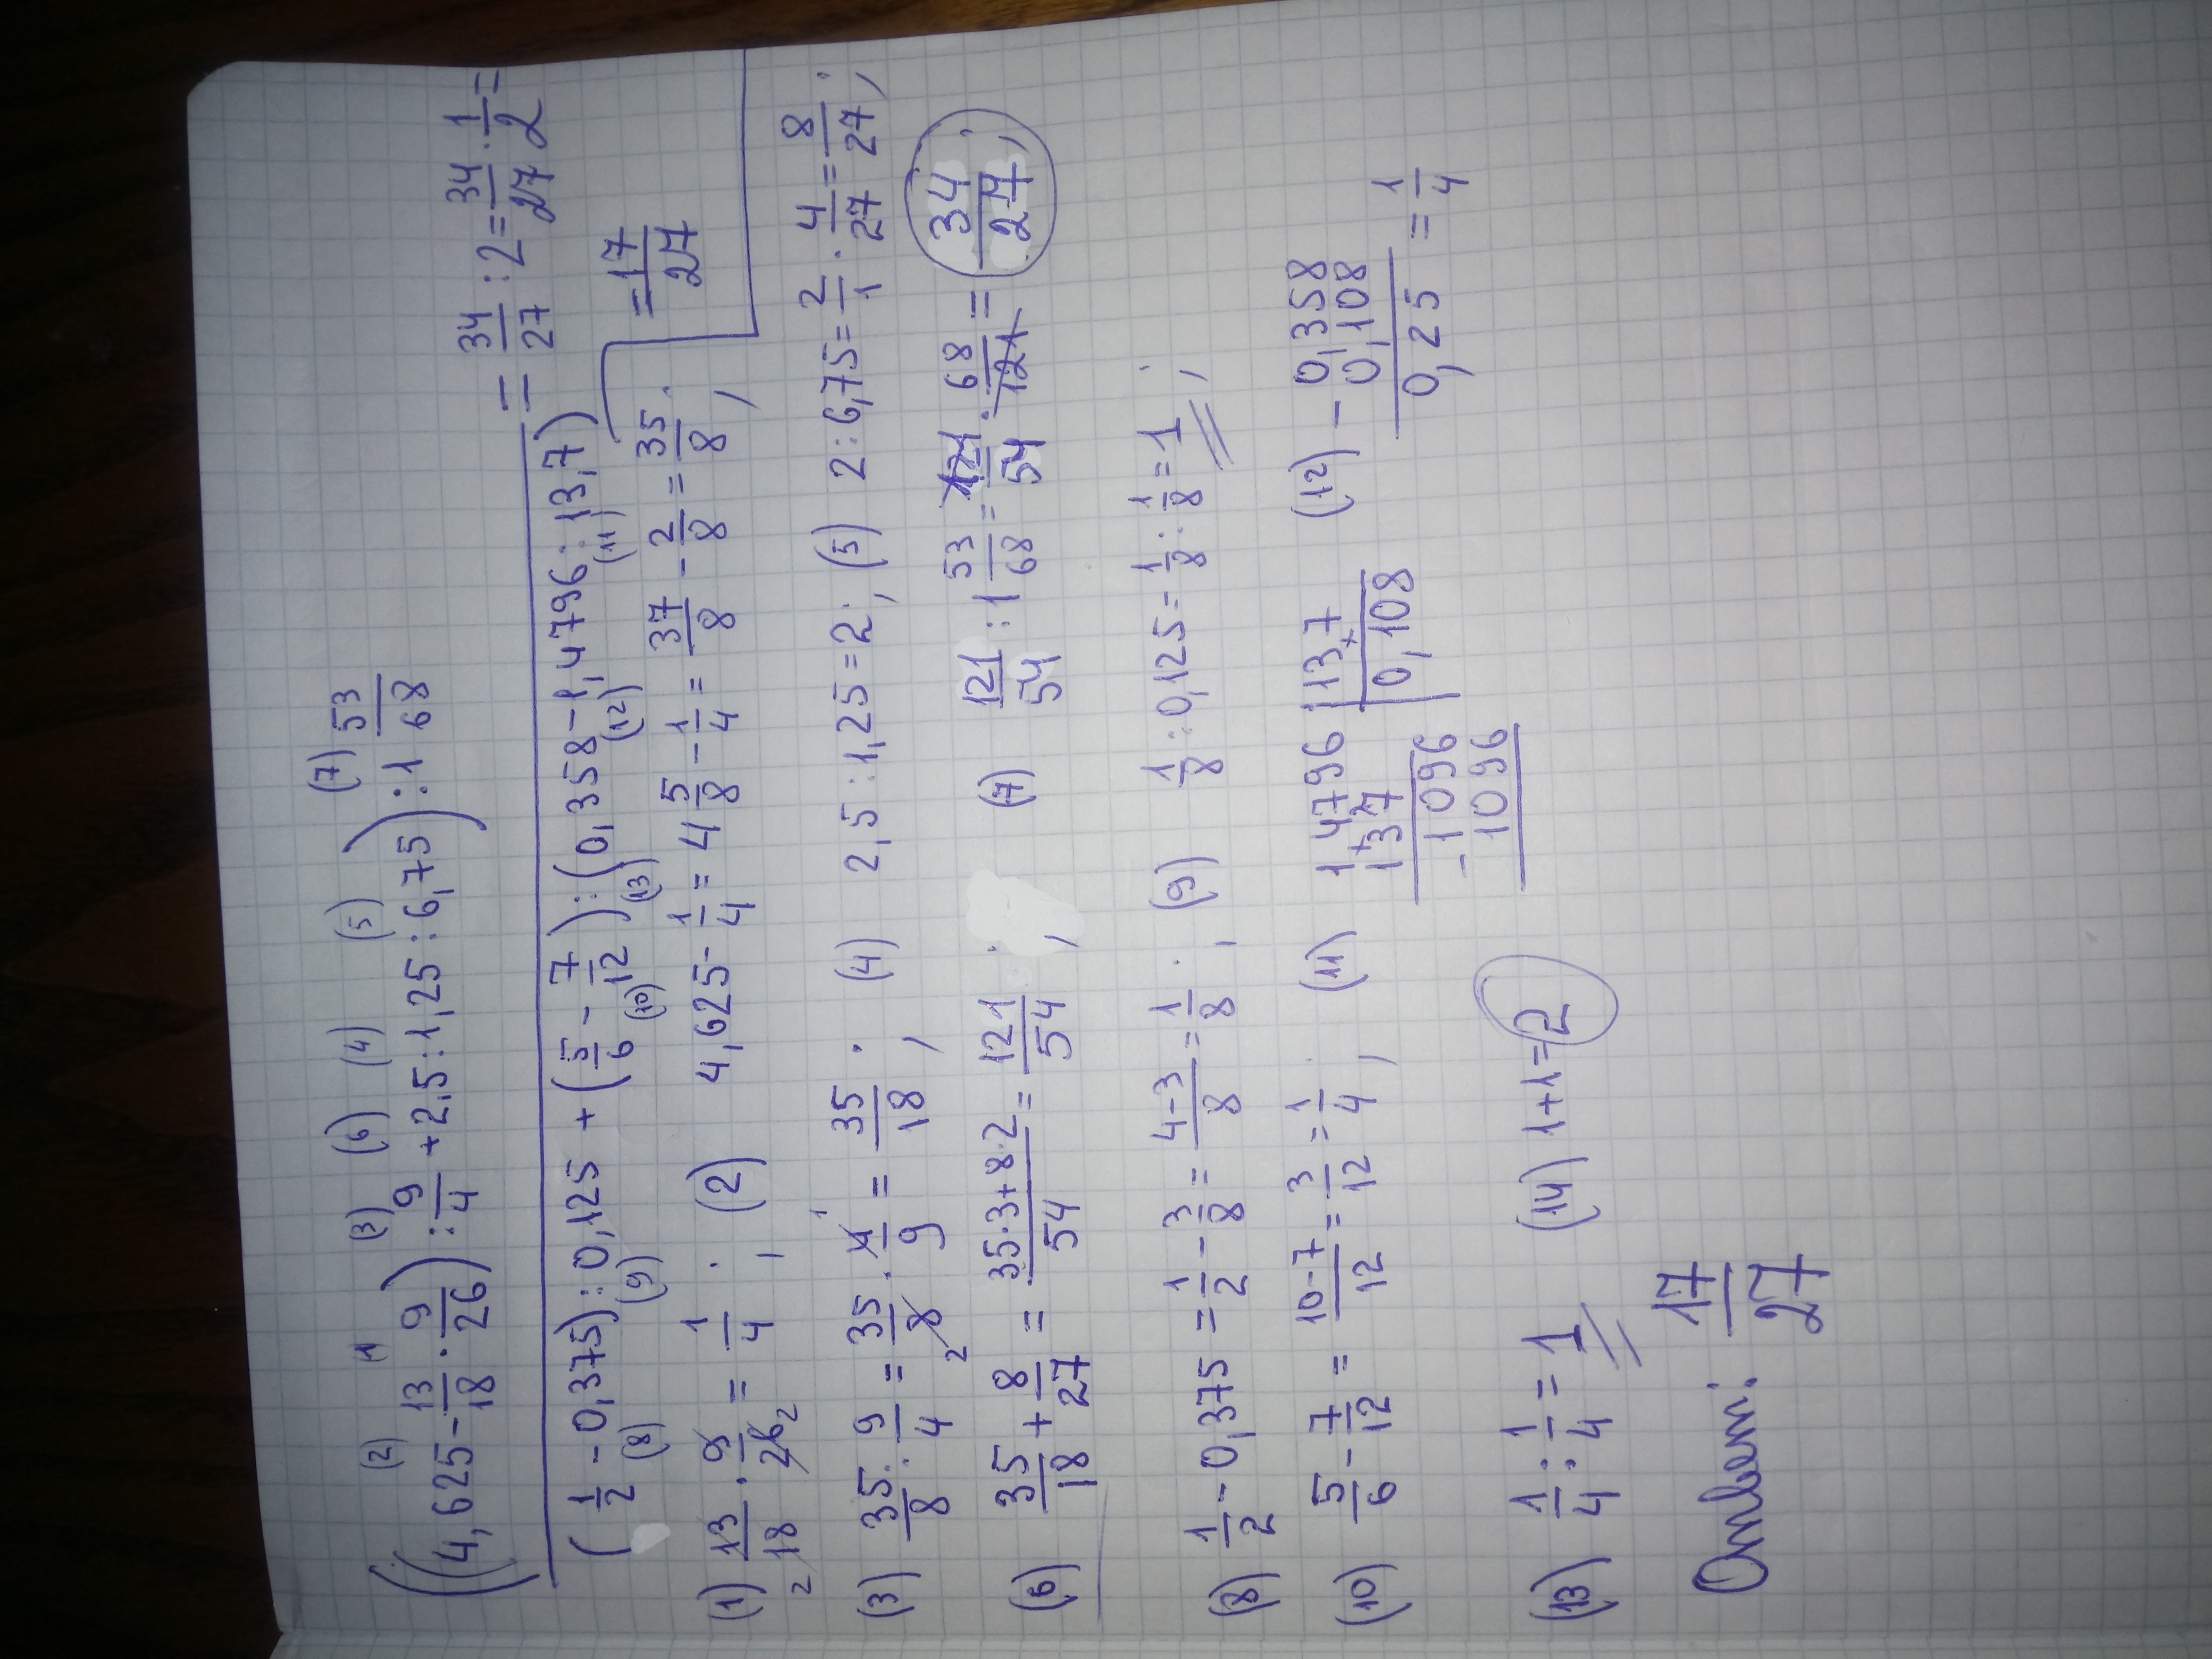 (2) 1 (3) (6) (4) (5) (7)
((4,625 - 13/18 · 9/26) : 9/4 + 2,5 : 1,25 : 6,75) : 1 53/68
(1/2 - 0,375) : 0,125 + (5/6 - 7/12) : (0,358 - 1,4796 : 13,7)
= 34/27 : 2 = 34/27 · 1/2 =
(8) (9) (10) (13) (12) (11)
= 17/27
(1) 13/18 · 9/26 = 1/4 ; (2) 4,625 - 1/4 = 4 5/8 - 1/4 = 37/8 - 2/8 = 35/8 ;
2 2
(3) 35/8 : 9/4 = 35/8 · 4/9 = 35/18 ; (4) 2,5 : 1,25 = 2 ; (5) 2 : 6,75 = 2/1 · 4/27 = 8/27 ;
2 1
(6) 35/18 + 8/27 = 35·3+8·2/54 = 121/54 ; (7) 121/54 : 1 53/68 = 121/54 · 68/121 = 34/27 ;
(8) 1/2 - 0,375 = 1/2 - 3/8 = 4-3/8 = 1/8 ; (9) 1/8 : 0,125 = 1/8 : 1/8 = 1 ;
(10) 5/6 - 7/12 = 10-7/12 = 3/12 = 1/4 ; (11) 1 4796 | 13,7 (12) - 0,358
137 0,108 0,108
-1096 0,25 = 1/4
1096
(13) 1/4 : 1/4 = 1 (14) 1+1=2
Ответ: 17/27